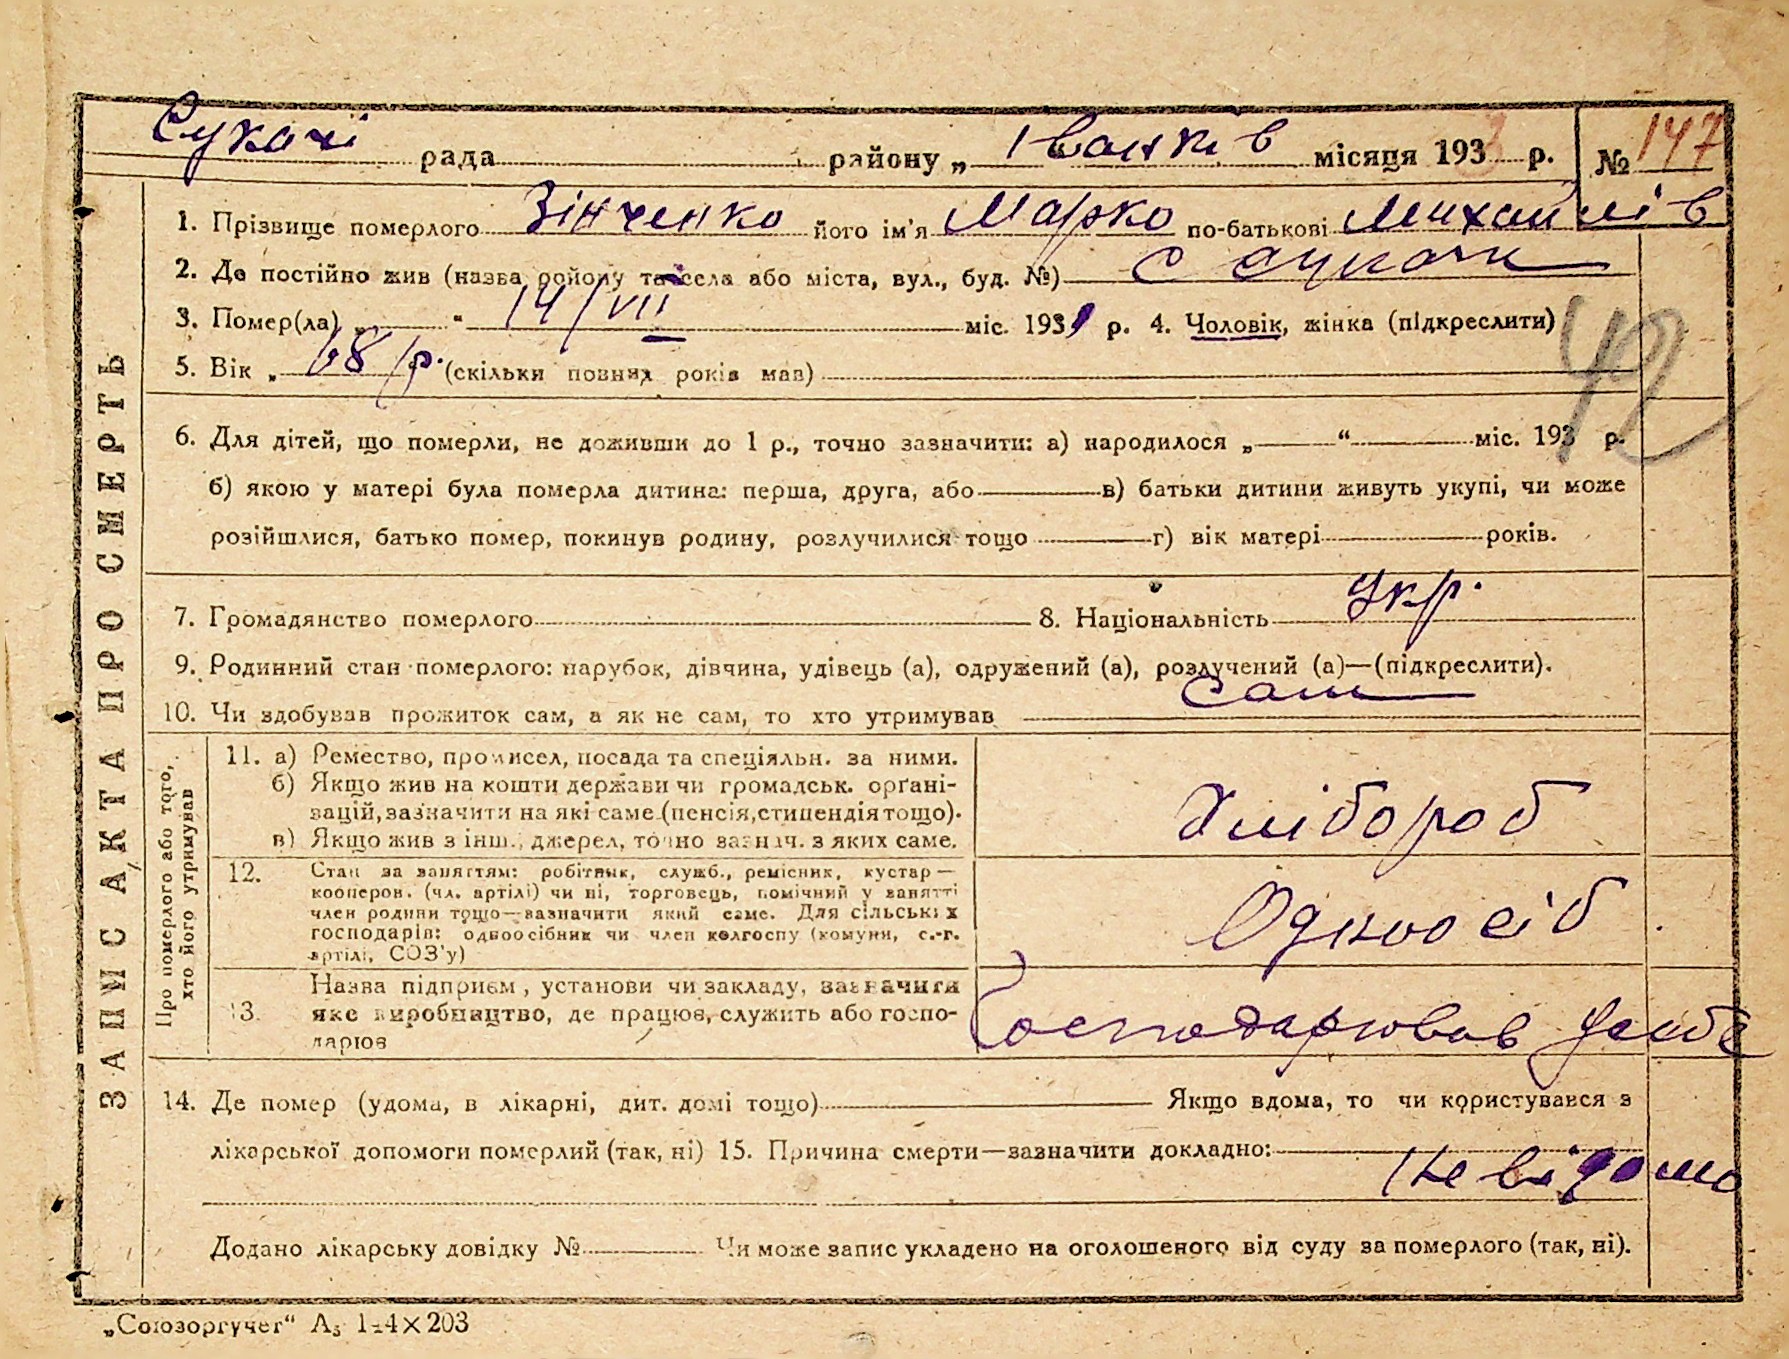 Сукачі рада району „ Іванків місяця 1933 р. № 147
1. Прізвище померлого Зінченко його ім'я Марко по-батькові Михайлів
2. Де постійно жив (назва ройону та села або міста, вул., буд. №) с Сукачи
3. Помер(ла) „ “ 14/VII міс. 193 р. 4. Чоловік, жінка (підкреслити)
42
5. Вік „ 68 р. (скільки повних років мав)
6. Для дітей, що померли, не доживши до 1 р., точно зазначити: а) народилося „ “ міс. 193 р.
б) якою у матері була померла дитина: перша, друга, або в) батьки дитини живуть укупі, чи може
розійшлися, батько помер, покинув родину, розлучилися тощо г) вік матері років.
7. Громадянство померлого 8. Національність Укр.
9. Родинний стан померлого: парубок, дівчина, удівець (а), одружений (а), розлучений (а)—(підкреслити).
10. Чи здобував прожиток сам, а як не сам, то хто утримував сам
ЗАПИС АКТА ПРО СМЕРТЬ
Про померлого або того,
хто його утримував
11. а) Ремество, промисел, посада та спеціяльн. за ними.
б) Якщо жив на кошти держави чи громадськ. орґані-
зацій, зазначити на які саме (пенсія, стипендія тощо).
в) Якщо жив з інш., джерел, точно зазнач. з яких саме.
Хлібороб
12. Стан за заняттям: робітник, служб., ремісник, кустар—
кооперов. (чл. артілі) чи ні, торговець, помічний у занятті
член родини тощо—зазначити який саме. Для сільських
господарів: одноосібник чи член колгоспу (комуни, с.-г.
артілі, СОЗ'у)
Одноосіб
13. Назва підприєм, установи чи закладу, зазначити
яке виробництво, де працюв, служить або госпо-
дарюв
Господарював
14. Де помер (удома, в лікарні, дит. домі тощо) Якщо вдома, то чи користувався з
лікарської допомоги померлий (так, ні) 15. Причина смерти—зазначити докладно:
Невідомо
Додано лікарську довідку № Чи може запис укладено на оголошеного від суду за померлого (так, ні).
„Союзоргучет“ А₅ 144×203